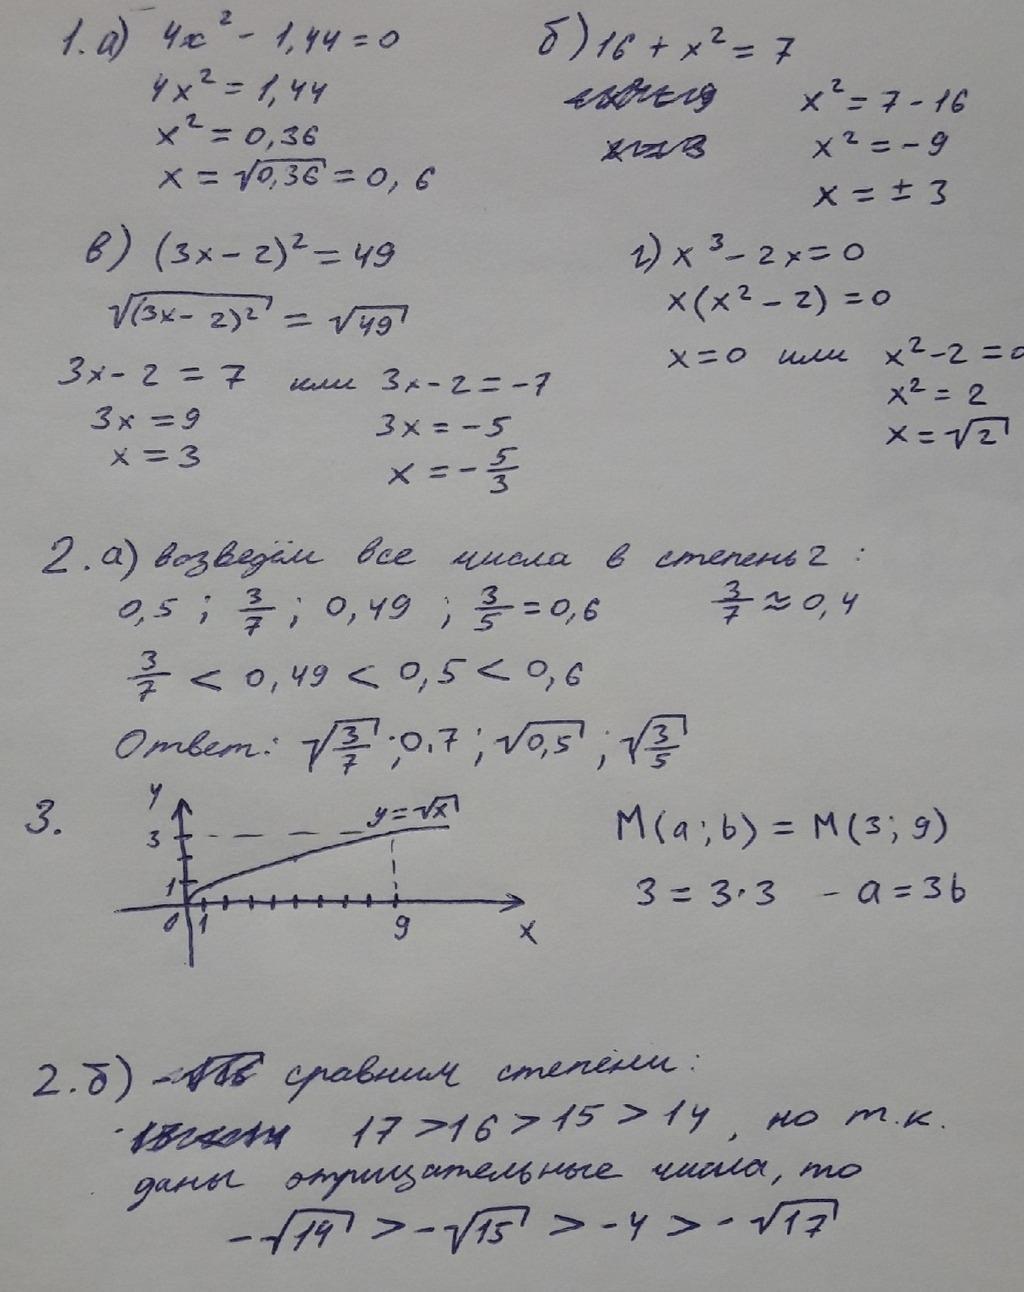 1. а) 4x² - 1,44 = 0
4x² = 1,44
x² = 0,36
x = √0,36 = 0,6
б) 16 + x² = 7
x² = 7 - 16
x² = -9
x = ± 3
в) (3x - 2)² = 49
√(3x - 2)² = √49
3x - 2 = 7 или 3x - 2 = -7
3x = 9 3x = -5
x = 3 x = -5/3
г) x³ - 2x = 0
x(x² - 2) = 0
x = 0 или x² - 2 = 0
x² = 2
x = √2
2. а) возведём все числа в степень 2 :
0,5 ; 3/7 ; 0,49 ; 3/5 = 0,6 3/7 ≈ 0,4
3/7 < 0,49 < 0,5 < 0,6
Ответ: √3/7 ; 0,7 ; √0,5 ; √3/5
3.
y
y = √x
3
1
0 1 9 x
M(a; b) = M(3; 9)
3 = 3·3 - a = 3b
2. б) сравним степени:
17 > 16 > 15 > 14, но т.к.
даны отрицательные числа, то
-√14 > -√15 > -4 > -√17